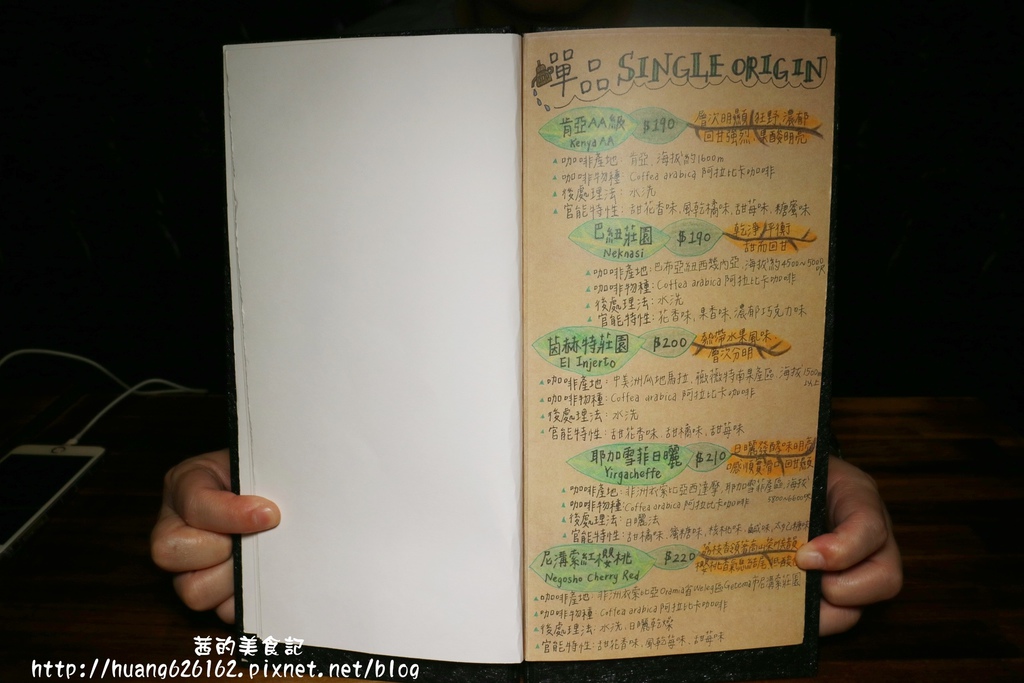 單品 SINGLE ORIGIN
肯亞AA級 $190 層次明顯 狂野 濃郁
Kenya AA 回甘強烈 果酸明亮
咖啡產地：肯亞，海拔約1600m
咖啡物種：Coffea arabica 阿拉比卡咖啡
後處理法：水洗
官能特性：甜花香味，風乾橘味，甜莓味，糖蜜味
巴紐莊園 $190 乾淨 平衡
Neknasi 甜而回甘
咖啡產地：巴布亞紐西幾內亞，海拔約4500~5000呎
咖啡物種：Coffea arabica 阿拉比卡咖啡
後處理法：水洗
官能特性：花香味，果香味，濃郁巧克力味
茵赫特莊園 $200 熱帶水果風味
El Injerto 層次分明
咖啡產地：中美洲瓜地馬拉，薇薇特南果產區，海拔1500m以上
咖啡物種：Coffea arabica 阿拉比卡咖啡
後處理法：水洗
官能特性：甜花香味，甜橘味，甜莓味
耶加雪菲日曬 $210 日曬發酵味明
Yirgacheffe
咖啡產地：非洲衣索比亞西達摩，耶加雪菲產區，海拔
咖啡物種：Coffea arabica 阿拉比卡咖啡 5800~6600呎
後處理法：日曬法
官能特性：甜橘味，蜜糖味，核桃味，鹹味
尼溝索紅櫻桃 $220
Negosho Cherry Red
咖啡產地：非洲衣索比亞Oromia省
咖啡物種：Coffea arabica 阿拉比卡咖啡
後處理法：水洗，日曬乾燥
官能特性：甜花香味，風乾莓味，甜莓味
茜的美食記
http://huang626162.pixnet.net/blog